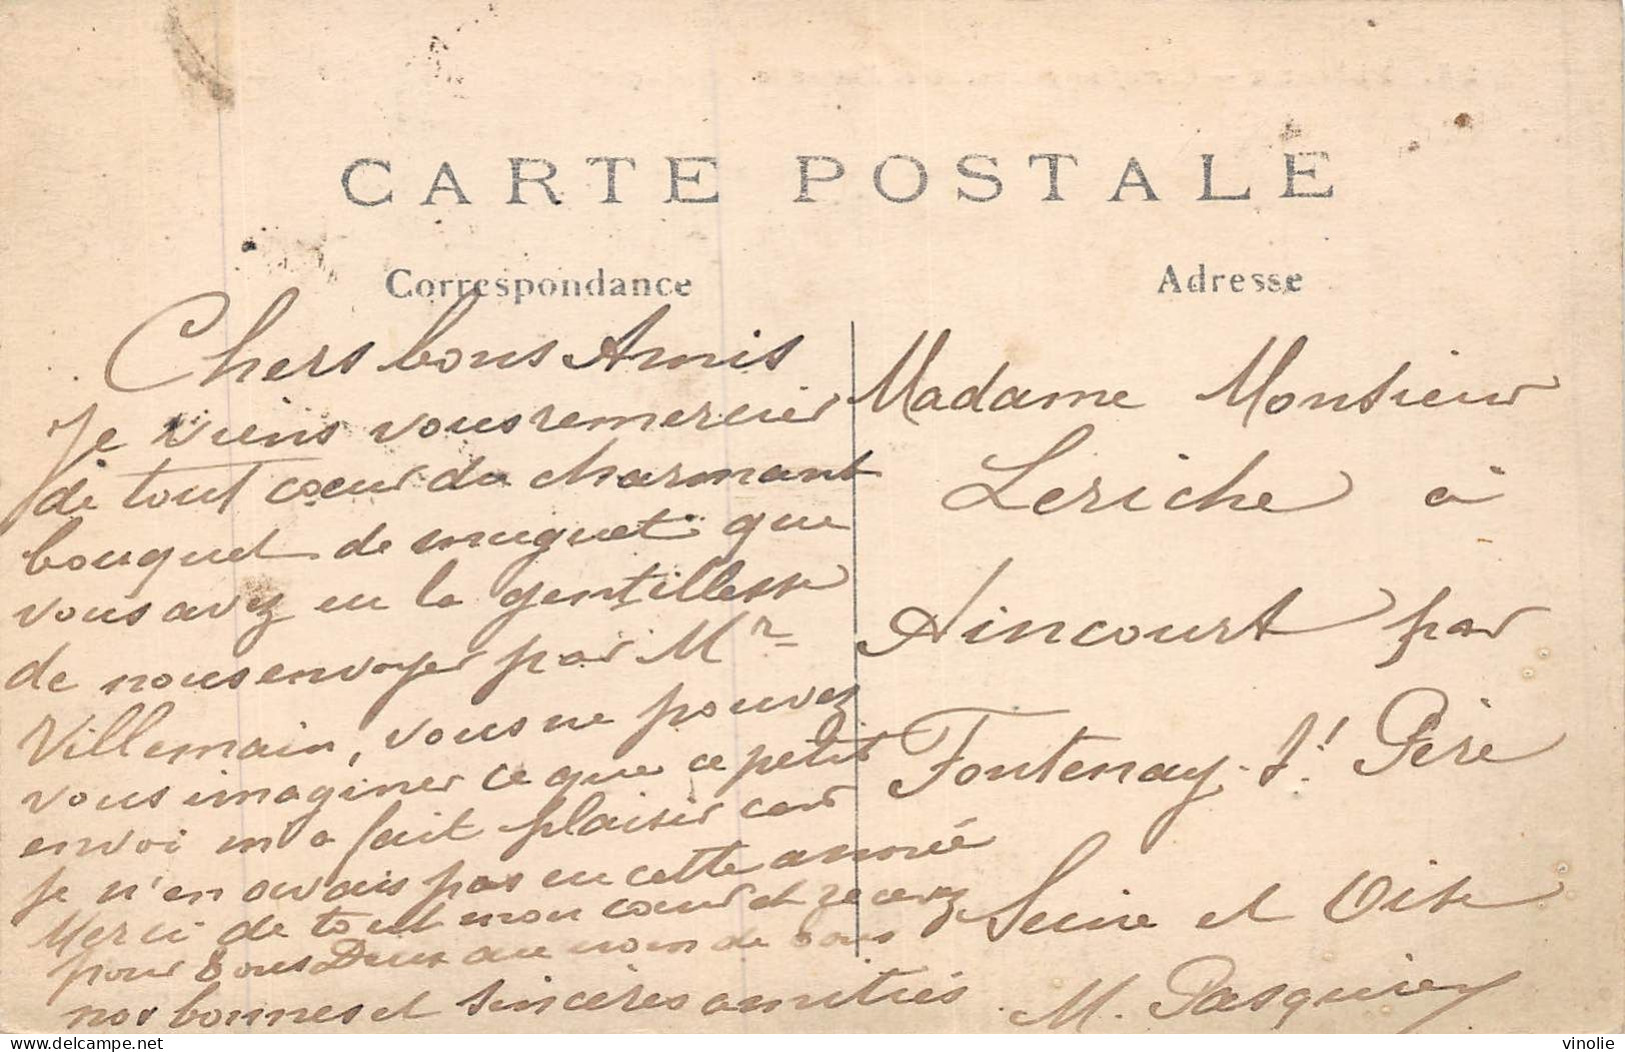 CARTE POSTALE
Correspondance
Adresse
Chers bons Amis
Je viens vous remercier
de tout cœur du charmant
bouquet de muguet que
vous avez eu la gentillesse
de nous envoyer par Mr
Villemain, vous ne pouvez
vous imaginer ce que ce petit
envoi m'a fait plaisir car
je n'en avais pas eu cette année
Merci de tout mon cœur et recevez
pour vous Deux au nom de tous
nos bonnes et sincères amitiés
M. Pasquier
Madame Monsieur
Leriche à
Aincourt par
Fontenay-St Père
Seine et Oise
delcampe.net
vinolie